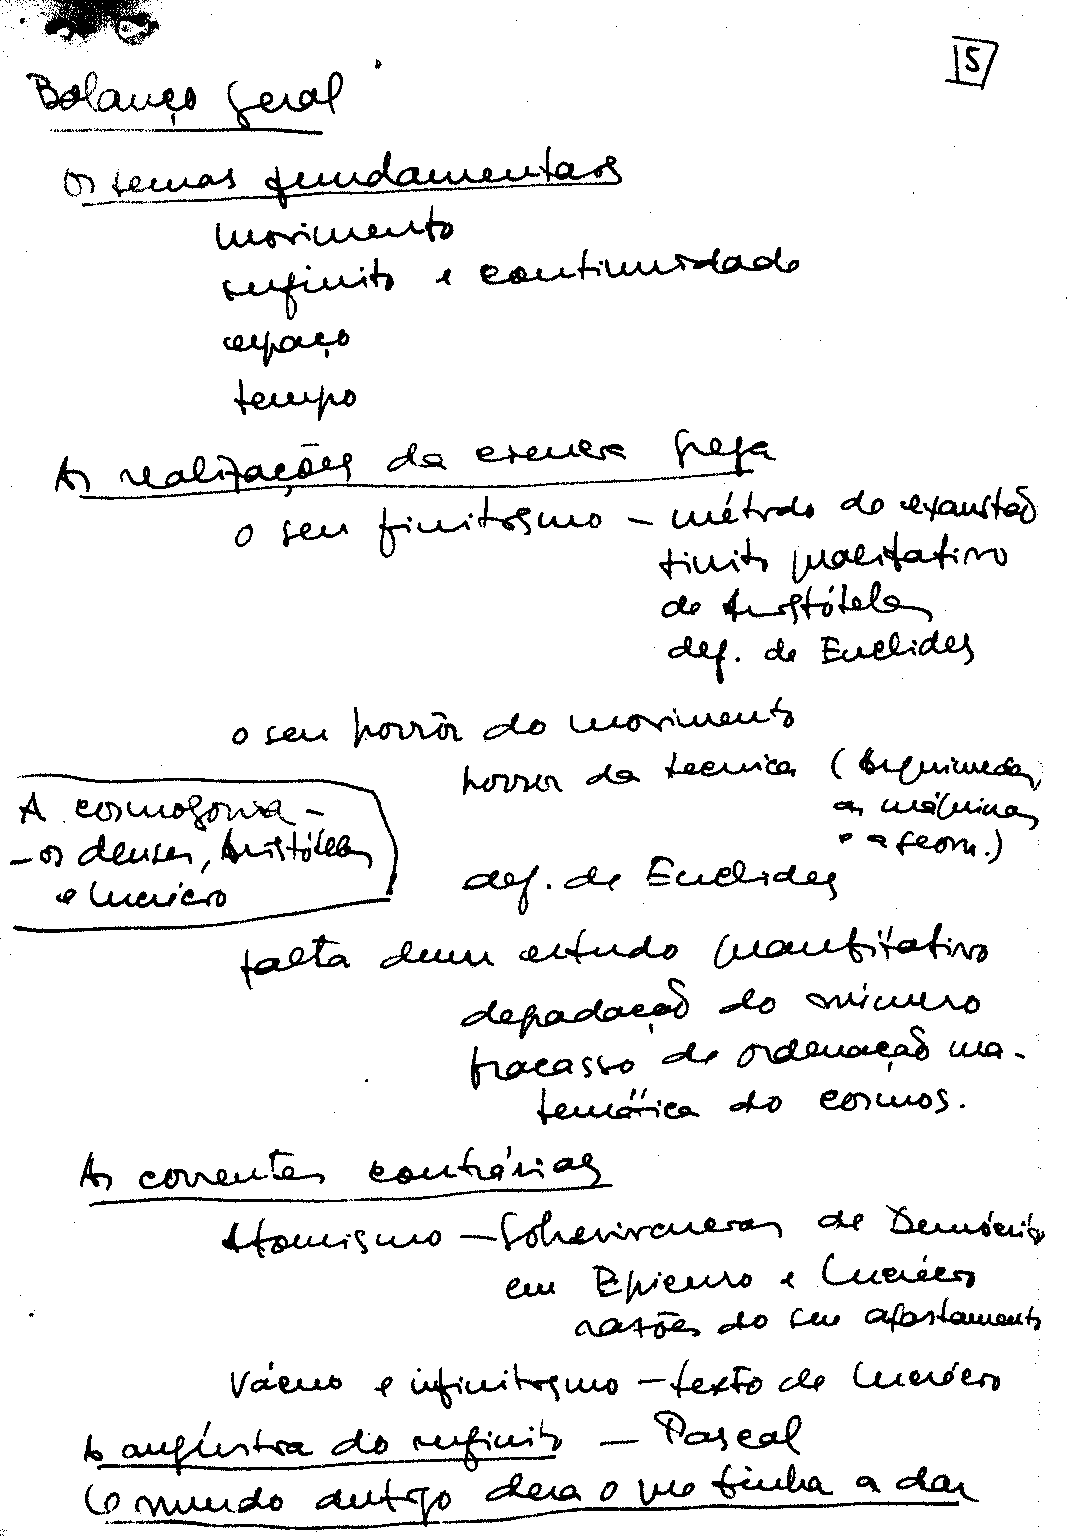 5
Balanço geral
Os temas fundamentais
movimento
infinito e continuidade
espaço
tempo
As realizações da ciência grega
o seu finitismo – método de exaustão
finito qualitativo
de Aristóteles
def. de Euclides
o seu horrôr do movimento
horror da tecnica (Arquimedes,
as máquinas
e a geom.)
A cosmogonia –
– os deuses, Aristóteles
e Lucrécio
def. de Euclides
falta dum estudo quantitativo
degradação do número
fracasso de ordenação ma-
temática do cosmos.
As correntes contrárias
Atomismo – Sobrevivencias de Demócrito
em Epicuro e Lucrécio
razões do seu afastamento
Vácuo e infinitismo – texto de Lucrécio
A angústia do infinito – Pascal
O mundo antigo dera o que tinha a dar